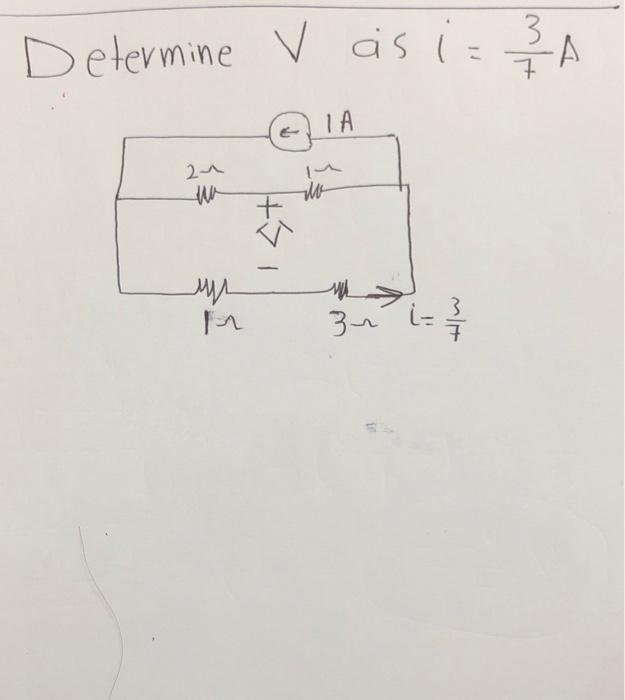 Determine V as i = 3/7 A
← 1A
2Ω 1Ω
+
V
-
1Ω 3Ω i= 3/7